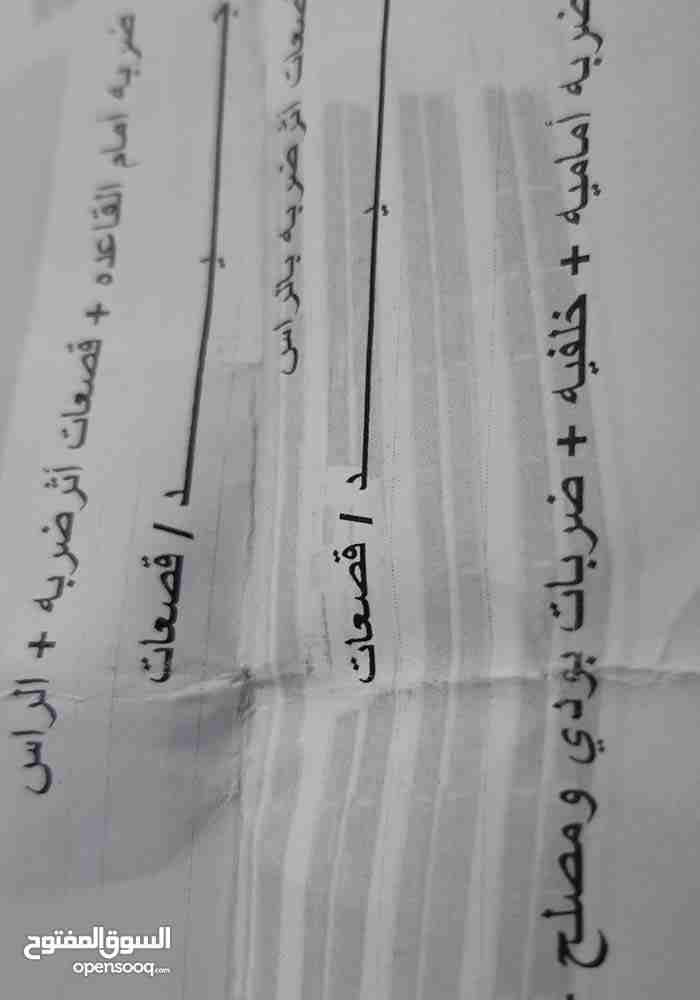 ضربه امام القاعده + قصعات أثر ضربه + الراس
جيد / قصعات
أثر ضربه بالراس
جيد / قصعات
ضربه أماميه + خلفيه + ضربات بودي ومصلح -
السوق المفتوح
opensooq.com